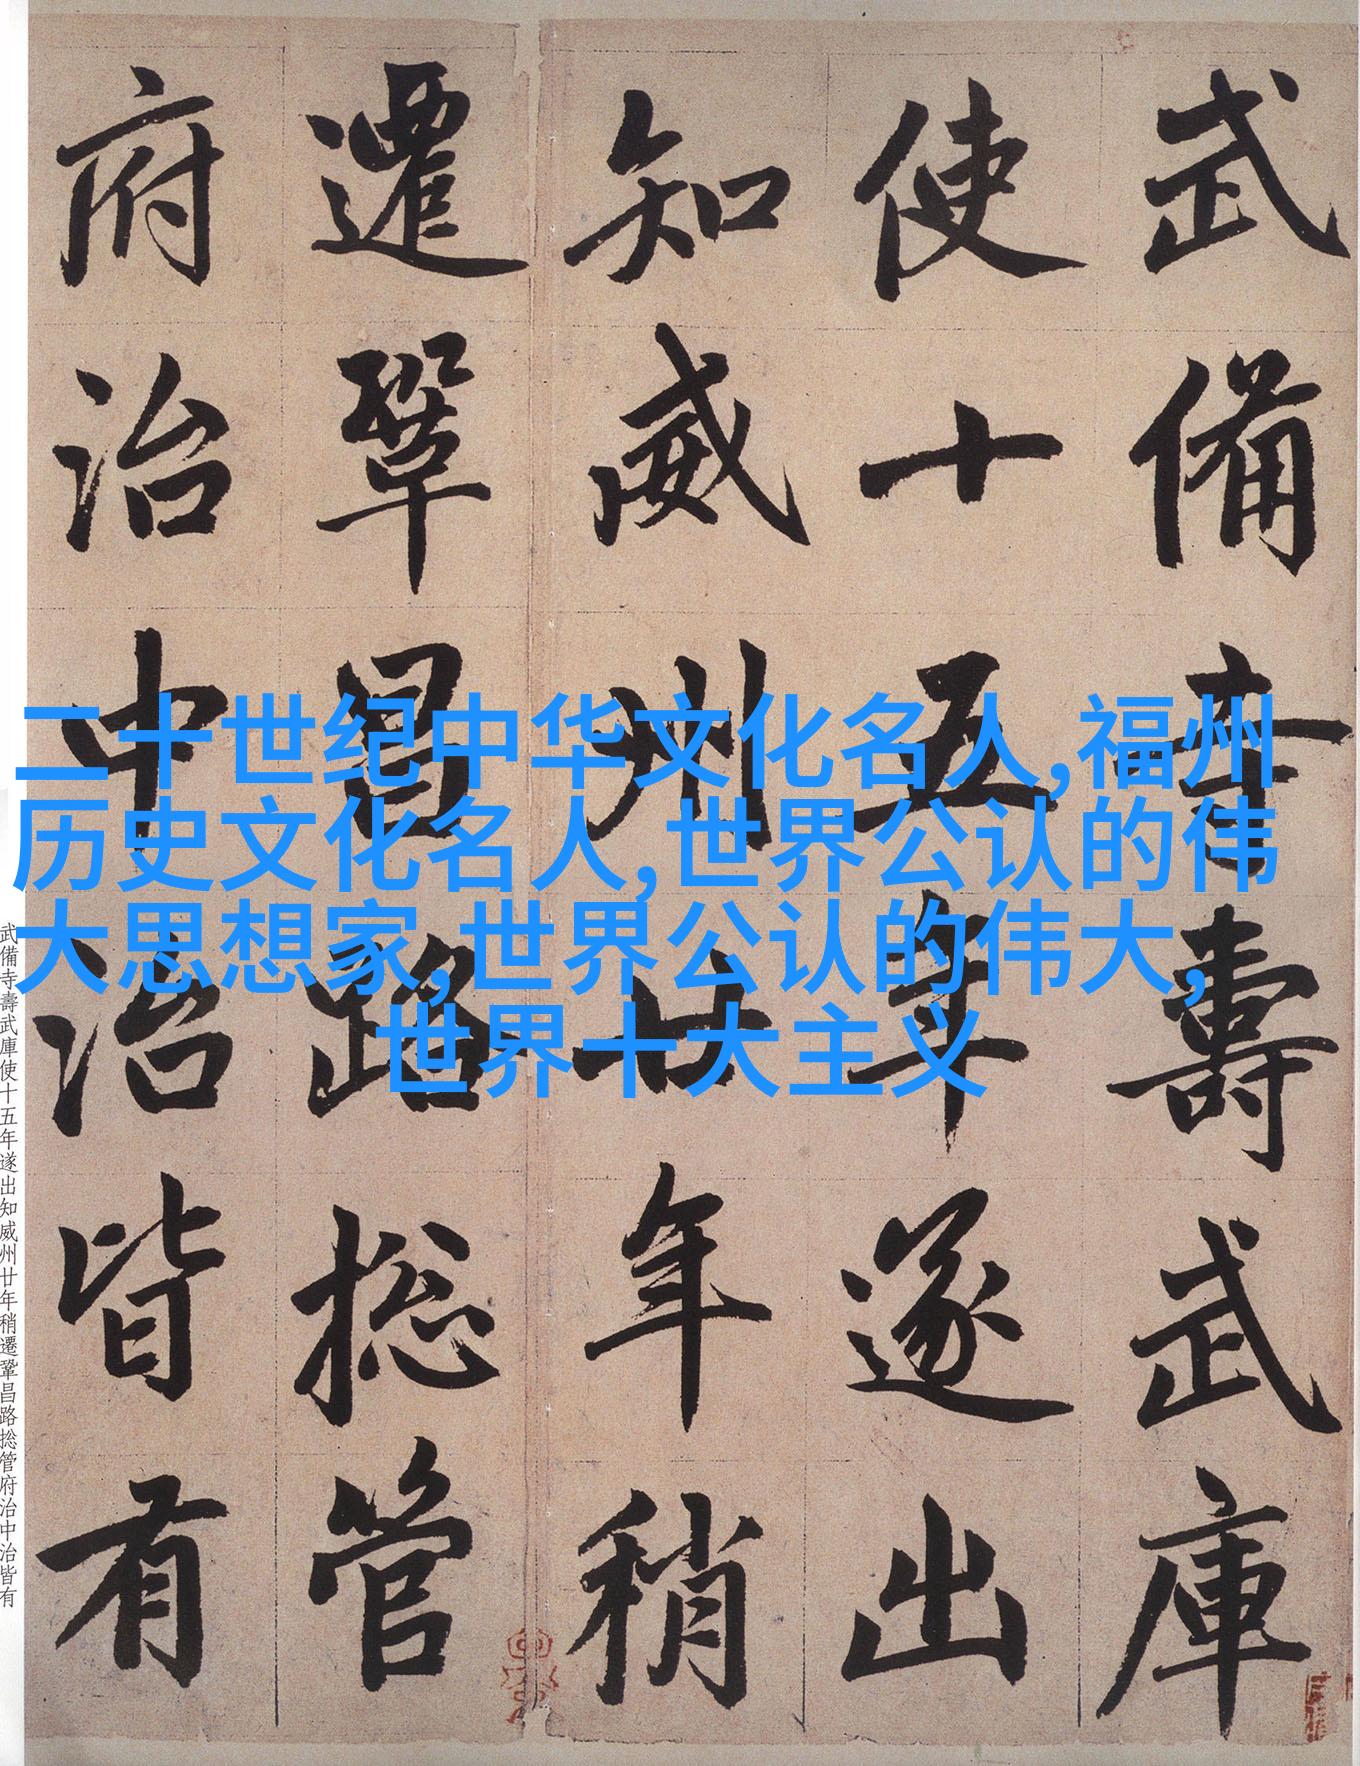 武備寺壽武庫
使十五年遂出
知威州廿年稍
遷鞏昌路捴管
府治中治皆有
二十世纪中华文化名人,福州
历史文化名人,世界公认的伟
大思想家,世界公认的伟大,
世界十大主义
武備寺壽武庫使十五年遂出知威州廿年稍遷鞏昌路捴管府治中治皆有